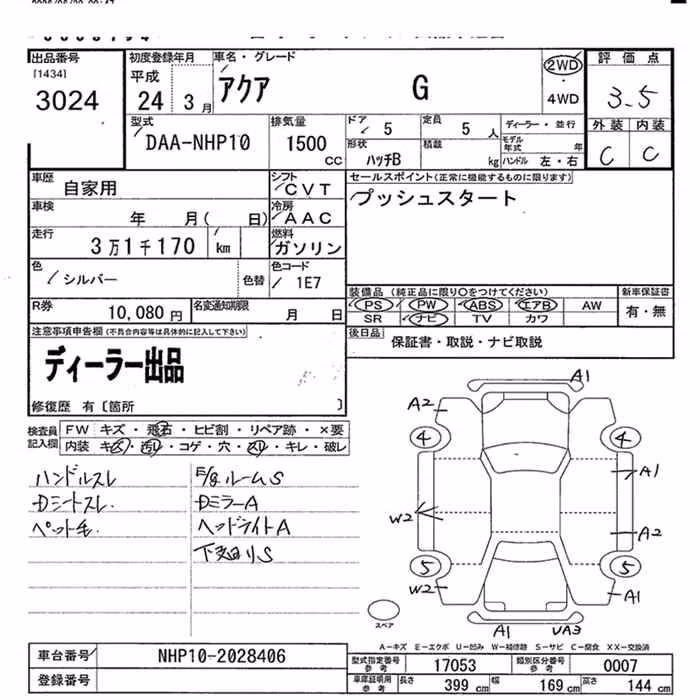 出品番号
[1434]
3024
初度登録年月
平成
24 3月
車名・グレード
アクア G
2WD
4WD
評価点
3.5
外装 内装
C C
型式
DAA-NHP10
排気量
1500
CC
ドア 5
定員 5 人
ディーラー・並行
形状
ハッチB
積載
kg
モデル年式 年
ハンドル 左・右
車歴 自家用
シフト
CVT
セールスポイント(正常に機能するものに限ります)
プッシュスタート
車検 年 月( 日)
冷房
AAC
走行 3万1千170 km
燃料
ガソリン
色 シルバー 色替
色コード
1E7
装備品 (純正品に限り○をつけてください)
新車保証書
PS PW ABS エアB AW
有・無
SR ナビ TV カワ
R券 10,080円
名変通知期限
月 日
後日品
保証書・取説・ナビ取説
注意事項申告欄(不具合内容等は具体的に記入して下さい)
ディーラー出品
修復歴 有 〔箇所 〕
検査員記入欄
FW キズ・飛石・ヒビ割・リペア跡・×要
内装 キズ・汚れ・コゲ・穴・スレ・キレ・破レ
ハンドルスレ
E/gルームS
Dシートスレ
DミラーA
ペット毛
ヘッドライトA
下廻りS
A1
A2
4 4
A1
W2
A2
5 5
W2
A1
A1 UA3
スペア
A-キズ E-エクボ U-凹み W-補修跡 S-サビ C-腐食 XX-交換済
車台番号 NHP10-2028406
型式指定番号 参考 17053
類別区分番号 参考 0007
登録番号
車庫証明用 参考
長さ 399 cm 幅 169 cm 高さ 144 cm